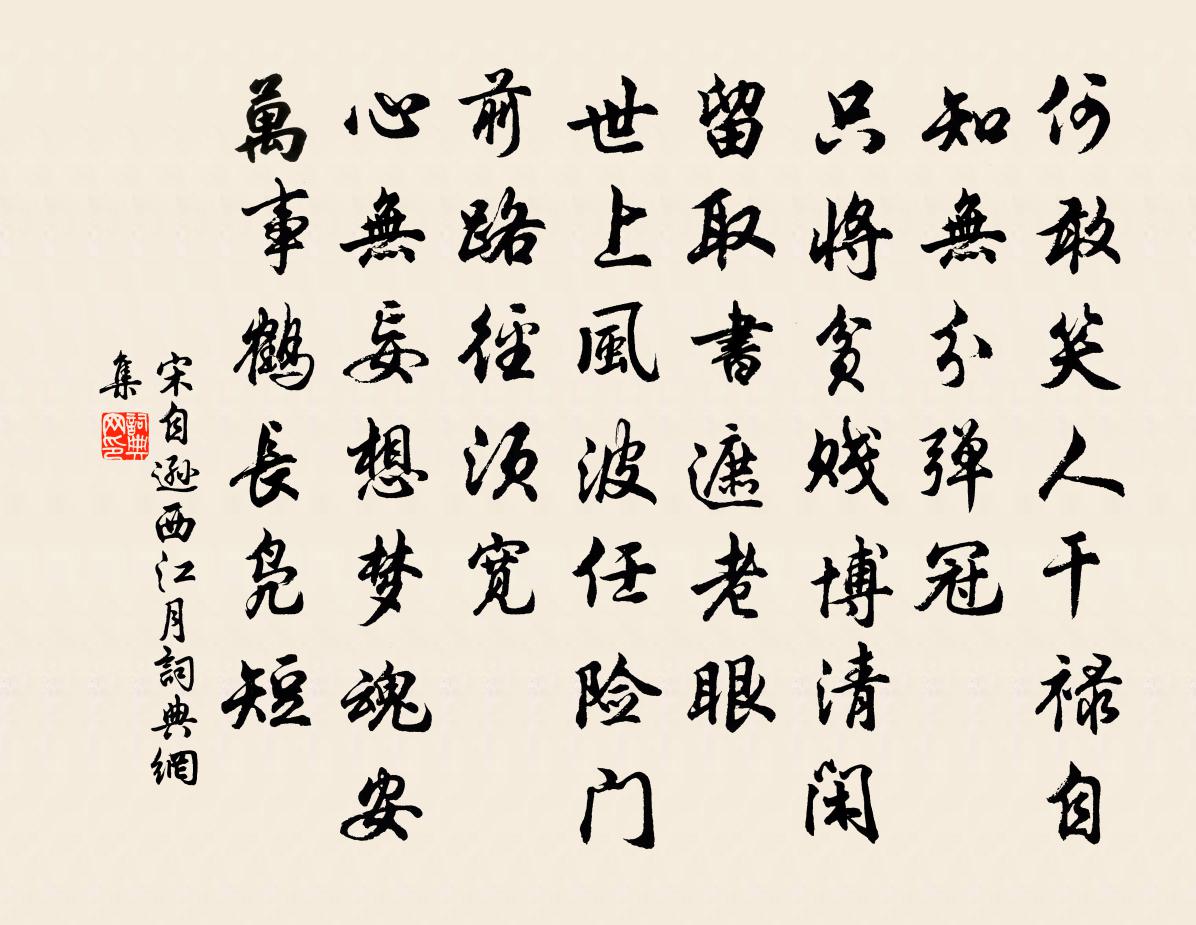 何敢笑人干禄自
知無分弹冠
只将貧贱博清閑
留取書遮老眼
世上風波任险门
前路径须宽
心無妄想梦魂安
萬事鶴長凫短
宋自逊西江月詞典網
集
詞典网印